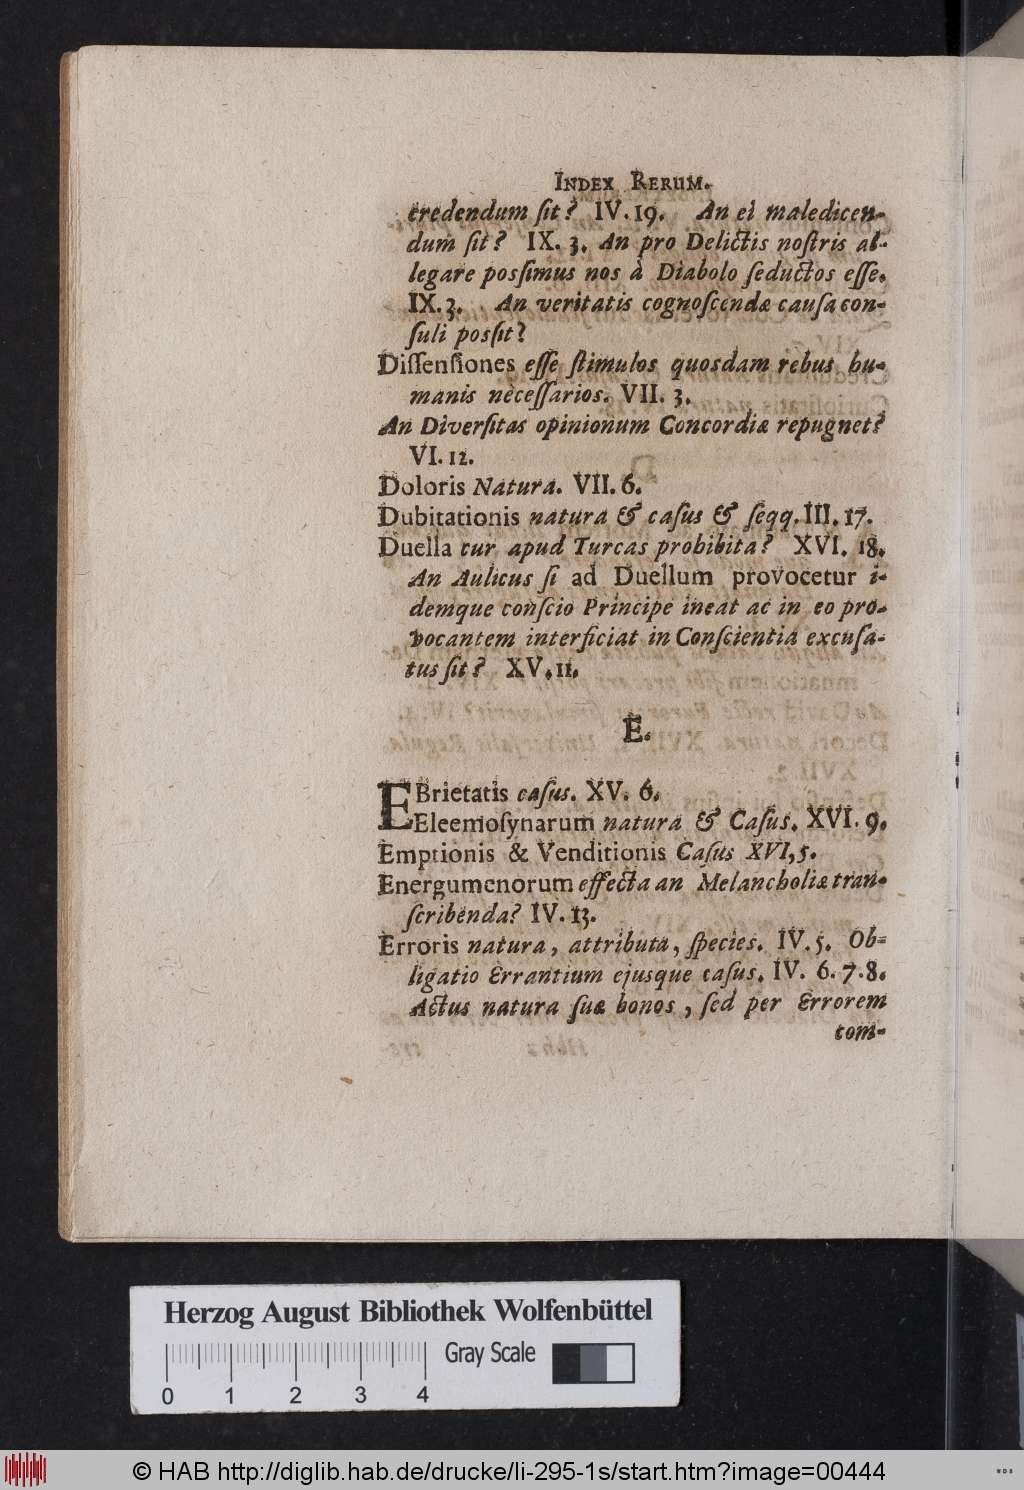 INDEX RERUM.
credendum ſit? IV. 19. An ei maledicen-
dum ſit? IX. 3. An pro Delictis noſtris al-
legare poſſimus nos à Diabolo ſeductos eſſe.
IX. 3. An veritatis cognoſcendæ cauſa con-
ſuli poſſit?
Diſſenſiones eſſe ſtimulos quosdam rebus hu-
manis neceſſarios. VII. 3.
An Diverſitas opinionum Concordiæ repugnet?
VI. 12.
Doloris Natura. VII. 6.
Dubitationis natura & caſus & ſeqq. III. 17.
Duella cur apud Turcas prohibita? XVI. 18.
An Aulicus ſi ad Duellum provocetur i-
demque conſcio Principe ineat ac in eo pro-
vocantem interficiat in Conſcientia excuſa-
tus ſit? XV. 11.
E.
EBrietatis caſus. XV. 6.
Eleemoſynarum natura & Caſus. XVI. 9.
Emptionis & Venditionis Caſus XVI, 5.
Energumenorum effecta an Melancholiæ tran-
ſcribenda? IV. 13.
Erroris natura, attributa, ſpecies. IV. 5. Ob-
ligatio Errantium ejusque caſus. IV. 6. 7. 8.
Actus natura ſuæ bonos, ſed per Errorem
com-
Herzog August Bibliothek Wolfenbüttel
Gray Scale
0 1 2 3 4
© HAB http://diglib.hab.de/drucke/li-295-1s/start.htm?image=00444